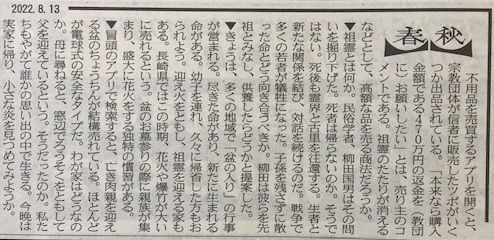 2022.8.13
春秋
不用品を売買するアプリを開くと、
宗教団体が信者に販売したツボがいく
つか出品されている。「本来なら購入
金額である470万円の返金を(教団
に)お願いしたい」とは、売り主のコ
メントである。祖霊のたたりが消える
などとして、高額な品を売る商法だろうか。
▼祖霊とは何か。民俗学者、柳田国男はその問
いを掘り下げた。死者は帰らないのか。そうで
はない。死後も霊界と古里を往還する。生者と
新たな関係を結び、対話を続けるのだ。戦争で
多くの若者が犠牲になった。子孫を残さずに散
った命とどう向き合うべきか。柳田は彼らを先
祖とみなし、供養したらどうかと提案した。
▼きょうは、多くの地域で「盆の入り」の行事
が営まれる。尽きた命があり、新たに生まれる
命がある。幼子を連れ、久々に帰省した方もお
られよう。迎え火をともし、祖霊を迎える家も
ある。長崎県ではこの時期、花火や爆竹が大い
に売れるという。盆のお墓参りの際に親族が集
まり、盛大に花火をする独特の慣習がある。
▼冒頭のアプリで検索すると、亡き肉親を迎え
る盆のちょうちんが結構売れている。ほとんど
が電球式の安全なタイプだ。わが家はどうなの
か。母に尋ねると、窓辺でろうそくをともして
父を迎えているという。そうだったのか。私た
ちもやがて誰かの思い出の中で生きる。今晩は
実家に帰り、小さな炎を見つめてみようか。